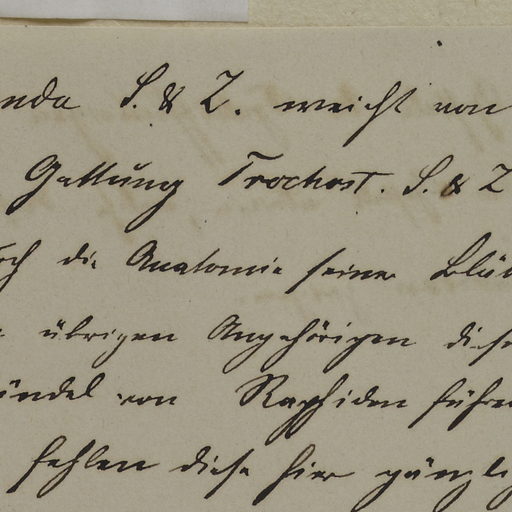 nda S. & Z. weicht von
Gattung Trochost. S. & Z
ch die Anatomie seiner Blüt
übrigen Angehörigen diese
ündel von Raphiden führe
fehlen diese hier gänzli